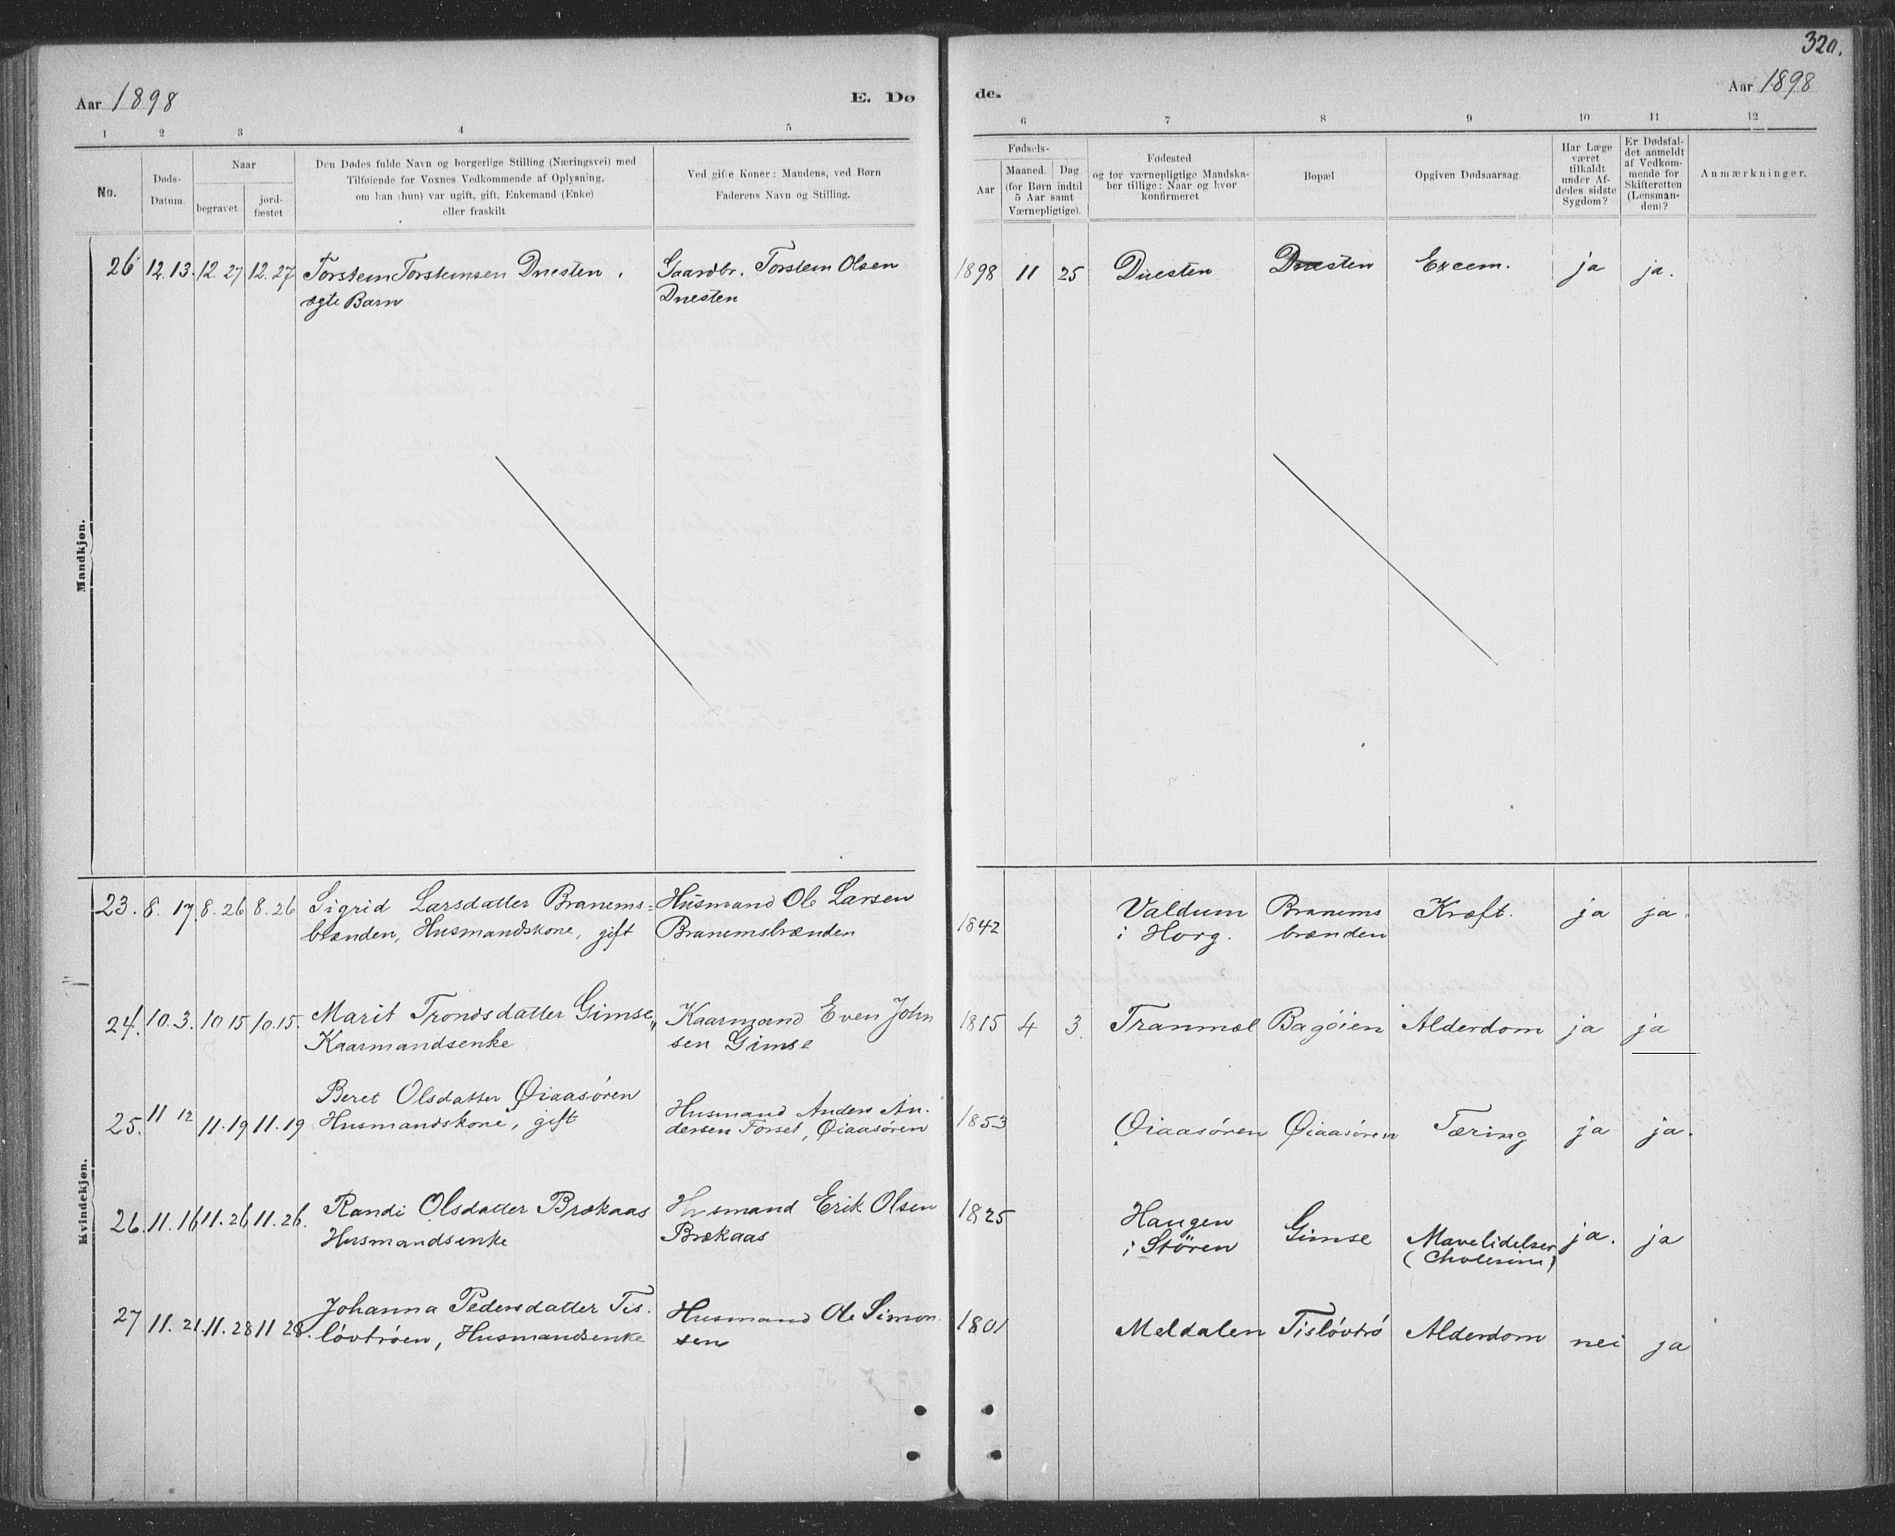 320.
Aar 1898 E. Dø de. Aar 1898
1 2 3 4 5 6 7 8 9 10 11 12
No.
Døds-
Datum.
Naar
begravet
jord-
fæstet
Den Dødes fulde Navn og borgerlige Stilling (Næringsvei) med
Tilføiende for Voxnes Vedkommende af Oplysning,
om han (hun) var ugift, gift, Enkemand (Enke)
eller fraskilt
Ved gifte Koner: Mandens, ved Børn
Faderens Navn og Stilling.
Fødsels-
Aar
Maaned. Dag
(for Børn indtil
5 Aar samt
Værnepligtige).
Fødested
og for værnepligtige Mandska-
ber tillige: Naar og hvor
konfirmeret
Bopæl
Opgiven Dødsaarsag.
Har Læge
været
tilkaldt
under Af-
dødes sidste
Sygdom?
Er Dødsfal-
det anmeldt
af Vedkom-
mende for
Skifteretten
(Lensman-
den)?
Anmærkninger.
Mandkjøn.
26 12.13. 12.27 12.27 Torstein Torsteinsen Duesten, Gaardbr. Torstein Olsen 1898 11 25 Duesten Duesten Excem. ja ja.
ægte Barn Duesten
Kvindekjøn.
23. 8. 17 8.26 8.26 Sigrid Larsdatter Branems= Husmand Ole Larsen 1842 Valdum Branems Kræft. ja ja.
brænden, Husmandskone, gift Branemsbrænden i Horg. brænden
24. 10.3. 10 15 10.15. Marit Trondsdatter Gimse, Kaarmand Even John 1815 4 3. Tranmæl Bagøien Alderdom ja ja
Kaarmandsenke sen Gimse
25. 11 12 11.19 11.19 Beret Olsdatter Øiaasøren Husmand Anders An- 1853 Øiaasøren Øiaasøren Tæring ja ja.
Husmandskone, gift dersen Forset, Øiaasøren
26. 11.16 11.26 11.26. Randi Olsdatter Brækaas Husmand Erik Olsen 1825 Haugen Gimse Mavelidelser ja. ja
Husmandsenke Brækaas i Støren (Cholerine)
27 11.21. 11.28 11 28. Johanna Pedersdatter Tis- Husmand Ole Simon 1801 Meldalen Tisløvtrø Alderdom nei ja
løvtrøen, Husmandsenke sen